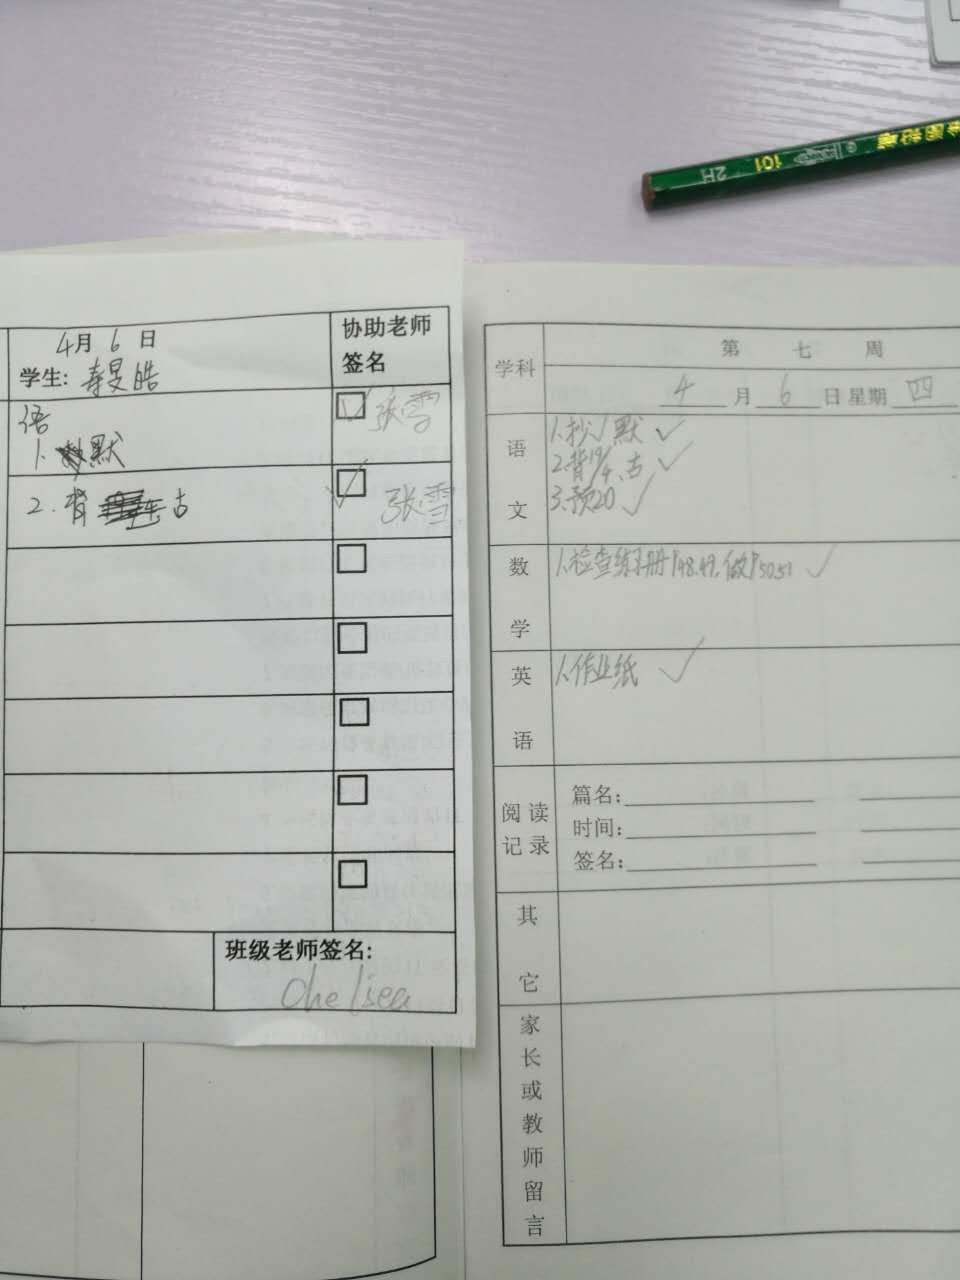 2H 101
4月6日
学生:
协助老师
签名
语
1. 默
张雪
2. 背 古
张雪
班级老师签名:
Chelsea
学科
第 七 周
4 月 6 日 星期 四
语文
1.抄、默 ✓
2.背 、古 ✓
3.预20 ✓
数学
1.检查练习册P48.49.做P50.51 ✓
英语
1.作业纸 ✓
阅读记录
篇名:
时间:
签名:
其它
家长或教师留言